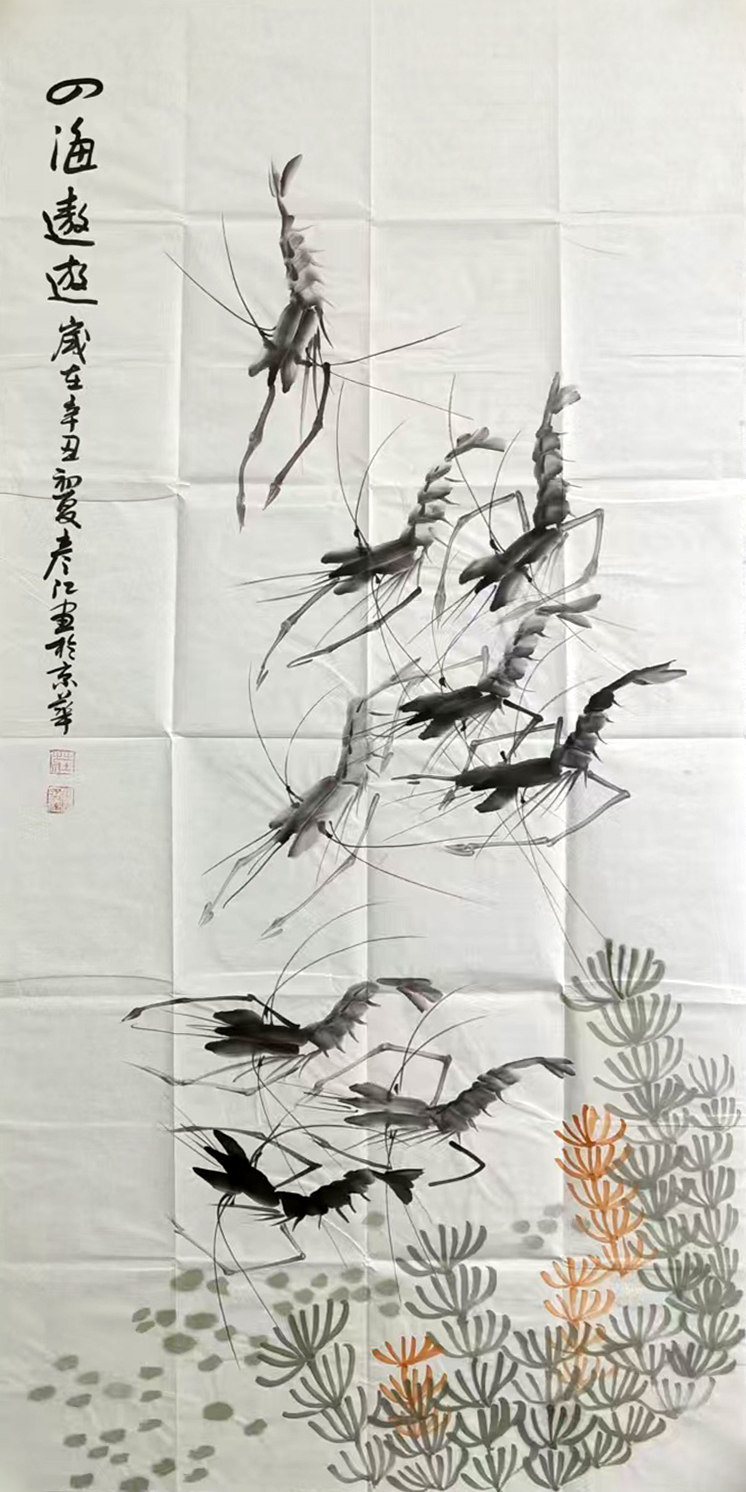 四海遨遊歲在辛丑初夏彦江画於京華